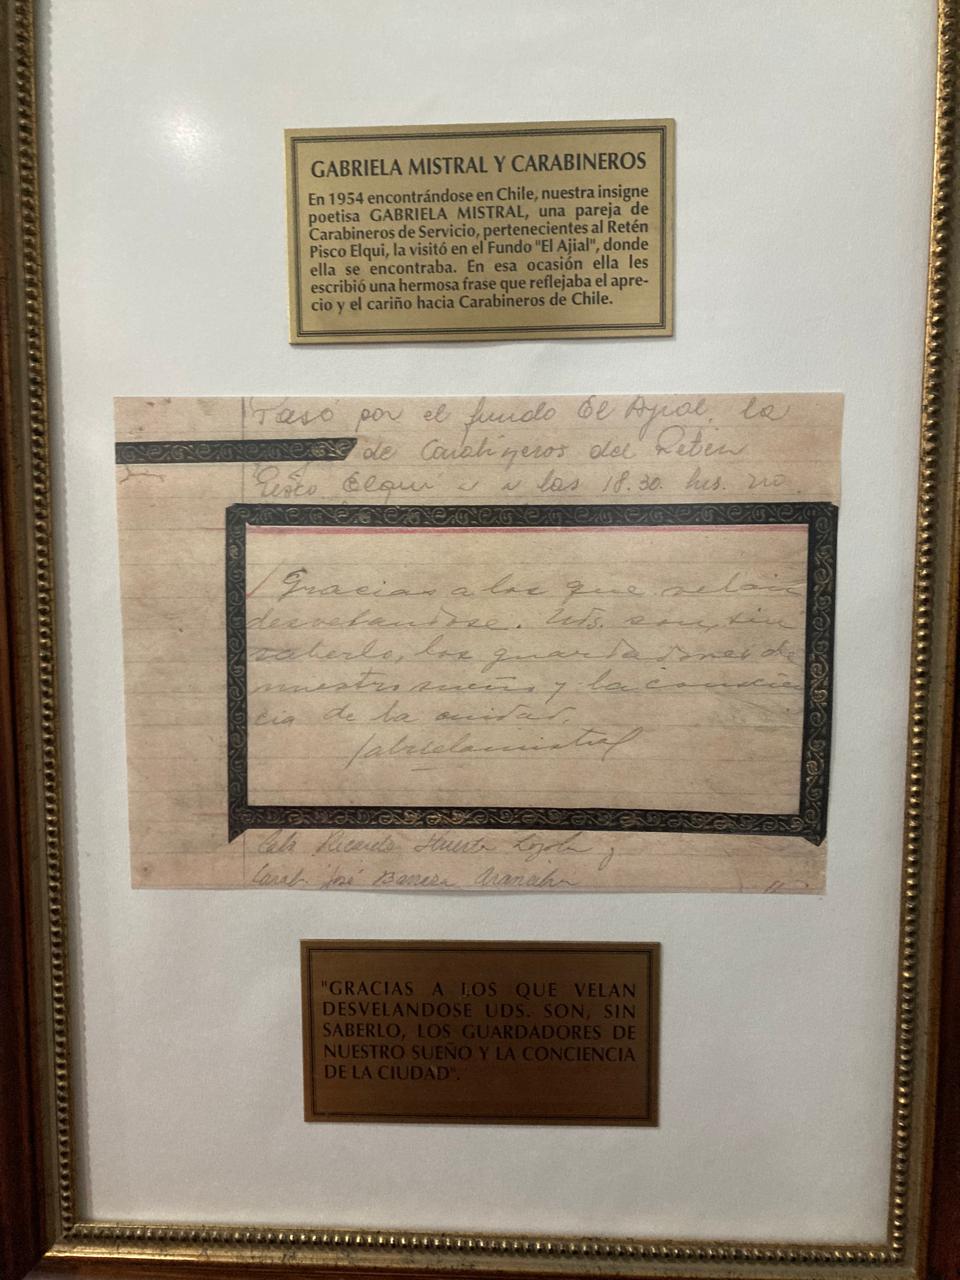 GABRIELA MISTRAL Y CARABINEROS
En 1954 encontrándose en Chile, nuestra insigne
poetisa GABRIELA MISTRAL, una pareja de
Carabineros de Servicio, pertenecientes al Retén
Pisco Elqui, la visitó en el Fundo "El Ajial", donde
ella se encontraba. En esa ocasión ella les
escribió una hermosa frase que reflejaba el apre-
cio y el cariño hacia Carabineros de Chile.
Pasó por el fundo El Ajial, la
de Carabineros del Retén
Pisco Elqui a las 18.30. hrs.
Gracias a los que velan
desvelandose. Uds. son, sin
saberlo, los guardadores de
nuestro sueño y la concien
cia de la ciudad.
Gabriela Mistral
Ricardo Huerta y
Carab. José Barrera
"GRACIAS A LOS QUE VELAN
DESVELANDOSE UDS. SON, SIN
SABERLO, LOS GUARDADORES DE
NUESTRO SUEÑO Y LA CONCIENCIA
DE LA CIUDAD".